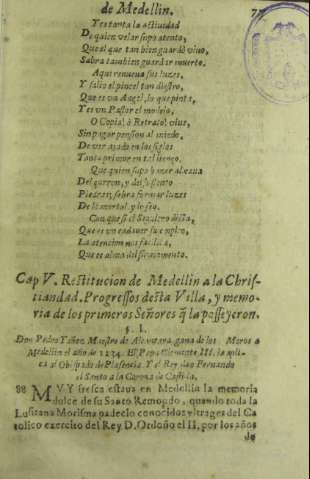 de Medellin.
Y es tanta la actiuidad
De quien velar supo atento,
Que al que tan bien guardò viuo,
Sabrà tambien guardar muerto.
Aqui renueua sus luzes,
Y salio el pincel tan diestro,
Que es vn Angel, lo que pinta,
Y es vn Pastor el modelo,
O Copia! ò Retrato! viue,
Sin pagar pension al miedo,
De ver ajada en los siglos
Tanto primor en tal lienço.
Que quien supo
Del
Piedras, sabrà formar luzes
De lo mortal, y lo
Con que si el
Que es vn cadauer su empleo,
La atencion mas facil
Que es alma del
Cap V. Restitucion de Medellin a la Chris-
tiandad, Progressos desta Villa, y memo-
ria de los primeros Señores q̃ la posseyeron.
§. I.
Don Pedro Yañez Maestre de Alcantara, gana de los Moros a
Medellin el año de 1234. El Papa Clemente III. la apli-
ca al Obispado de Plasencia. Y el Rey don Fernando
el Santo a la Corona de Castilla.
88 MVY fresca estaua en Medellin la memoria
dulce de su Santo Remondo, quando toda la
Lusitana Morisma padecio conocidos vltrages del Ca
tolico exercito del Rey D. Ordoño el II. por los años
de